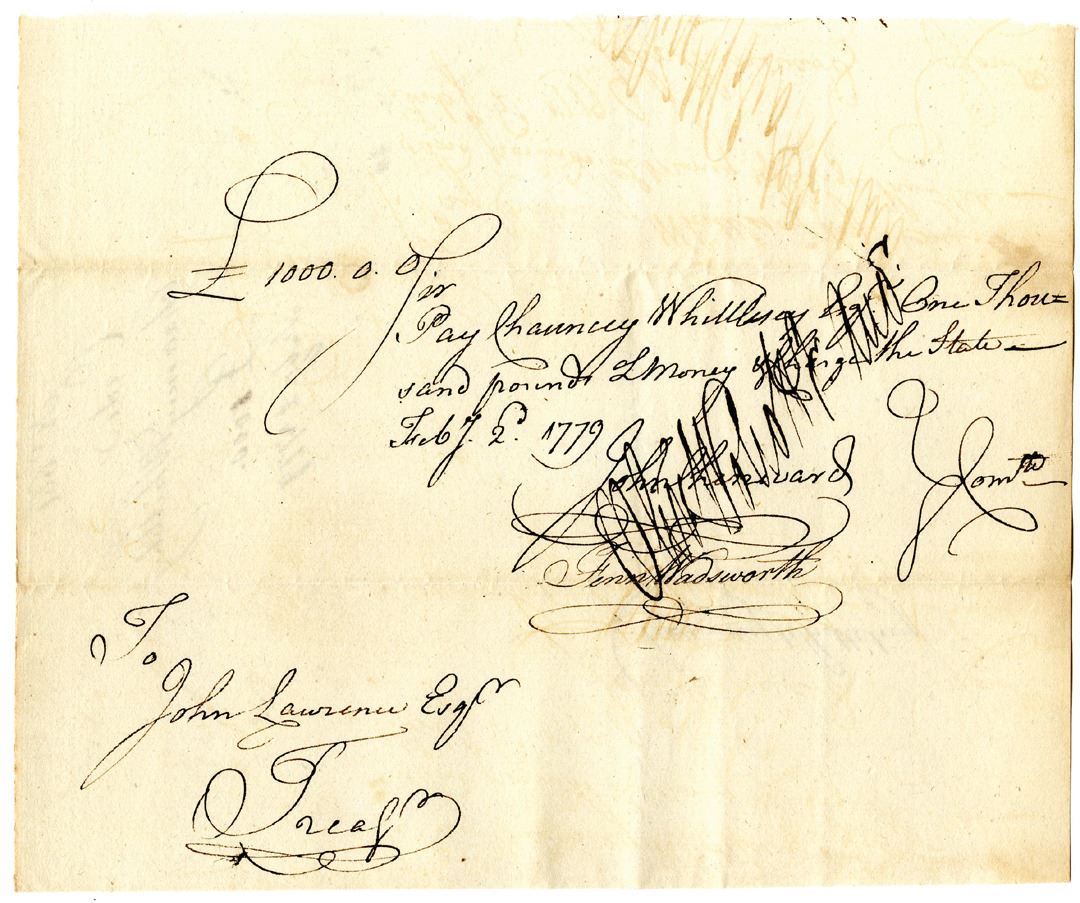 £ 1000. 0. 0
Sir
Pay Chauncey Whittlesey Esqr. One Thou=
sand pounds L Money & Charge the State
Feby. 2d. 1779
John Chenevard
Fenn Wadsworth
Comtte
To
John Lawrence Esqr
Treasr